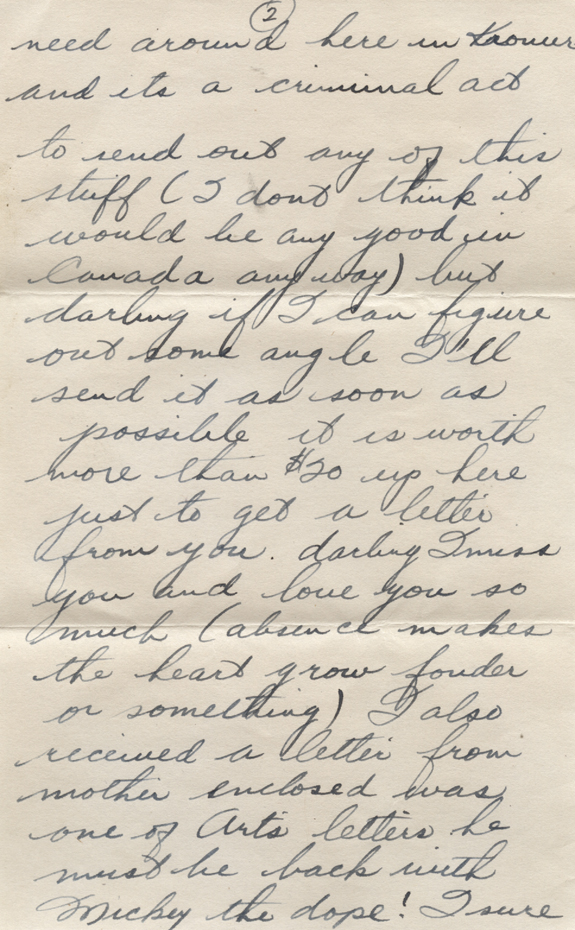 2
need around here in
and its a criminal act
to send out any of this
stuff (I dont think it
would be any good in
Canada anyway) but
darling if I can figure
out some angle I'll
send it as soon as
possible it is worth
more than $20 up here
just to get a letter
from you. darling I miss
you and love you so
much (absence makes
the heart grow fonder
or something) I also
received a letter from
mother enclosed was
one of Arts letters he
must be back with
Mickey the dope! I sure